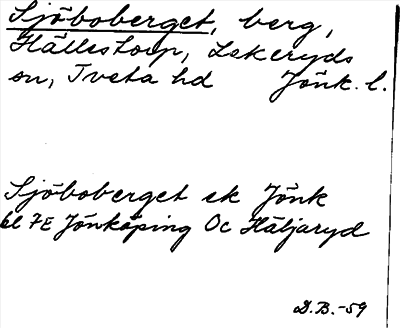 Sjöboberget, berg,
Hällestorp, Lekeryds
sn, Tveta hd Jönk. l.
Sjöboberget ek Jönk
bl 7E Jönköping Oc Häljaryd
D.B.-59